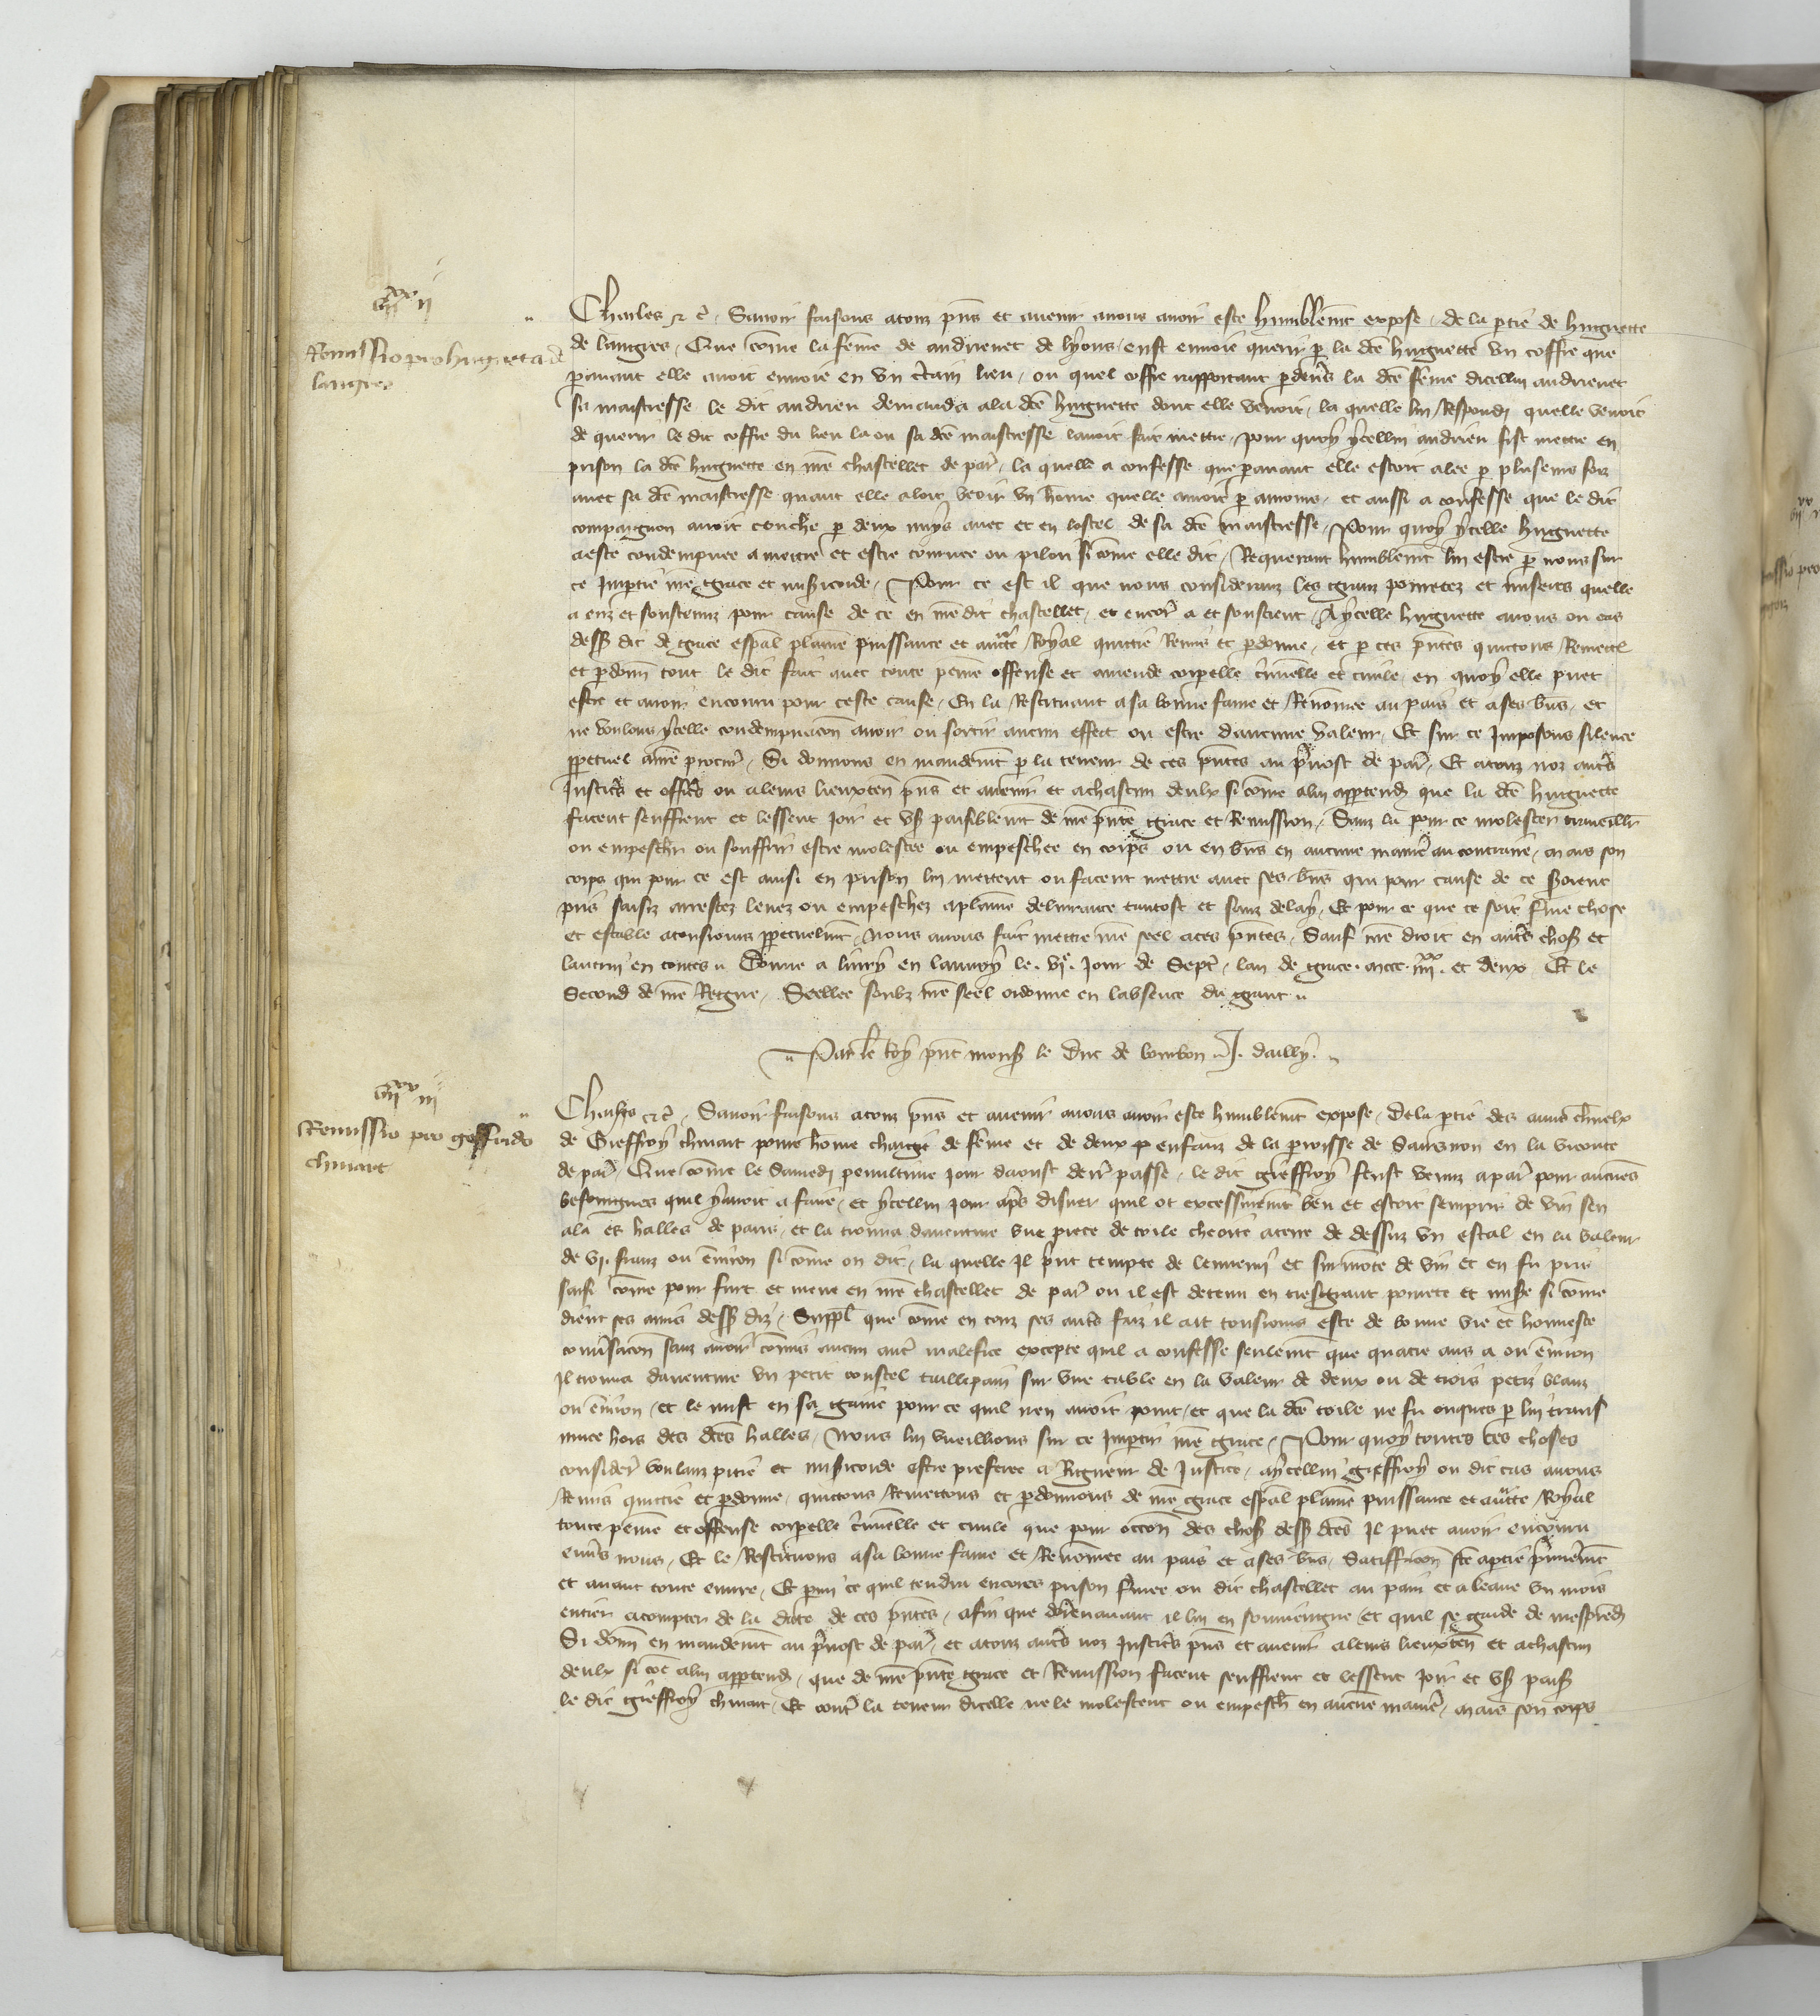 vii xx ii
Remissio pro hugueta de
langres
Charles etc. Savoir faisons a touz pñs et avenir a nous avoir este humblemt expose de la ptie de huguette
de langres, Que cõme la fẽme de andrenet de lyons eust envoie querir p la dce huguette un coffre que
paravant elle avoit envoie en un ctain lieu, ou quel coffre rapportant pdevs la dce fẽme dicellui andrenet
sa maistresse le dit andrieu demanda a la dce huguette dont elle venoit, la quelle lui respondi quelle venoit
de querir le dit coffre du lieu la ou sa dce maistresse lavoit fait mettre, pour quoy ycellui andrieu fist mettre en
prison la dce huguette en nre chastellet de par, la quelle a confesse que paravant elle estoit alee p pluseurs foiz
avec sa dce maistresse quant elle aloit veoir un hõme quelle amoit p amours, et aussi a confesse que le dit
compaignon avoit couche p deux nuys avec et en lostel de sa dce maistresse, Pour quoy ycelle huguette
a este condempnee a mettre et estre tournee ou pilori si cõme elle dit, Requerant humblemt lui estre p nous sur
ce Imptie nre grace et misicorde, Pour ce est il que nous considerans les grans povretez et miseres quelle
a euz et soustenuz pour cause de ce en nre dit chastellet, et encor a et soustient, A ycelle huguette avons ou cas
dess dit de grace espal plaine puissance et aucte Royal quittie Remis et pdonne, et p ces pntes quittons Remett
et pdonn tout le dit fait avec toute peine offense et amende corpelle cminelle et civile en quoy elle puet
estre et avoir encouru pour ceste cause, En la Restituant a sa bonne fame et Renõmee au pais et a ses bns, et
ne voulons ycelle condempnacõn avoir ou sortir aucun effect ou estre daucune valeur, Et sur ce Imposons silence
ppetuel a nre procur, Si donnons en mandemt p la teneur de ces pntes au pvost de par, Et a touz noz autrs
Justicrs et officrs ou a leurs lieuxten pns et avenir et a chascun deulx si cõme a lui apptendr que la dce huguette
facent seuffrent et lessent joir et us paisiblemt de nre pnte grace et Remission, Sanz la pour ce molester travaillr
ou empeschr ou souffrir estre molestee ou empeschee en corps ou en bns en aucune manie au contraire, mais son
corps qui pour ce est ainsi en prison lui mettent ou facent mettre avec ses bns qui pour cause de ce seroient
pris saisiz arrestez levez ou empeschez a plaine delivrance tantost et sanz delay, Et pour ce que ce soit fme chose
et estable a tousiours ppetuelmt, Nous avons fait mettre nre seel a ces pntes, Sauf nre droit en autrs chos et
lautrui en toutes. Donne a livry en lannoy le. vi e. Jour de Sept, lan de grace. mccc. iiii xx. et deux Et le
Second de nre Regne, Seellee soubz nre seel ordonne en labsence du grant
Par le Roy pnt mons le duc de bourbon J. dailly.
vii xx iii
Remissio pro goffrido
chuart
Charles etc. Savoir faisons a touz pns et avenir a nous avoir este humblemt expose, De la ptie des amis chnelx
de Gieffroy chuart povre hõme chargie de fẽme et de deux enfanz de la parroisse de Sarsnon en la viconte
de par, Que cõme le Samedi penultime jour daoust denr passe, le dit gieffroy feust venuz a par pour aucunes
besoingnes quil y avoit a faire, et ycellui jour aps disner quil ot excessivemt beu et estoit sempris de vin sen
ala es halles de paris, et la trouva daventure une piece de toile cheoite a terre de dessuz un estal en la valeur
de vi. frans ou environ si cõme on dit, la quelle Il print tempte de lennemi et surmote de vin et en fu pris
saisi cõme pour furt et mene en nre chastellet de par ou il est detenu en tresgrant povrete et mise si cõme
dient ses amis dess diz, Suppl que cõme en touz ses autrs faiz il ait tousiours este de bonne vie et honneste
convsacõn sanz avoir cõmis aucun autr malefice excepte quil a confesse seulemt que quatre ans a ou environ
Il trouva daventure un petit coustel taillepain sur une table en la valeur de deux ou de trois petiz blans
ou environ, et le mist en sa gaine pour ce quil nen avoit point, et que la dce toile ne fu onques p lui trans
muee hors des dces halles, Nous lui vueillions sur ce Impartir nre grace, Pour quoy toutes ces choses
considere voulanz pitie et misicorde estre preferee a Rigueur de Justice, a ycellui gieffroy ou dit cas avons
Remis quittie et pdonne, quittons Remettons et pdonnons de nre grace espal plaine puissance et aucte Royal
toute peine et offense corpelle cminelle et civile que pour occon des chos dess dces Il puet avoir encouru
envs nous, Et le Restituons a sa bonne fame et Renõmee au pais et a ses bns, Satiffacon fce a ptie pmieremt
et avant toute euvre, Et parmi ce quil tendra encores prison fmee ou dit chastellet au pain et a leaue un mois
entier a compter de la date de ces pntes, afin que dorenavant il lui en souviengne, et quil se garde de mesprendr
Si donn en mandemt au pvost de par, et a touz autrs noz Justicrs pns et avenir a leurs lieuxten et a chascun
deulx si cõe a lui apptendr, que de nre pnte grace et Remission facent seuffrent et lessent joir et us pais
le dit gieffroy chuart, Et contr la teneur dicelle ne le molestent ou empesch en aucune manier, mais son corps